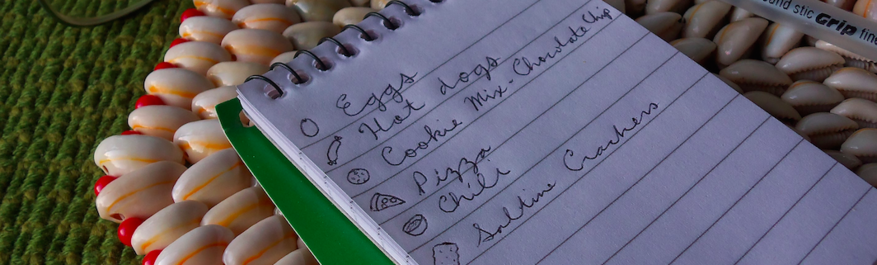 ound stic Grip fine
Eggs
Hot dogs
Cookie Mix-Chocolate Chip
Pizza
Chili
Saltine Crackers